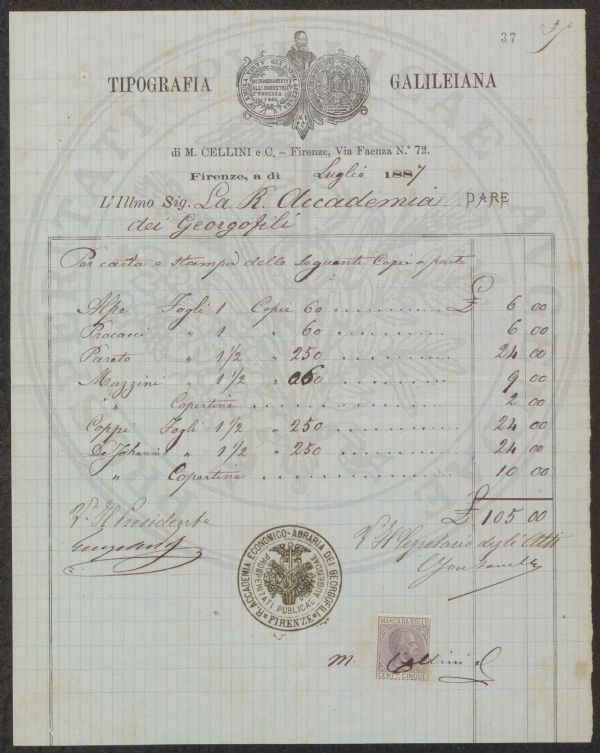 37
TIPOGRAFIA GALILEIANA
di M. CELLINI e C. – Firenze, Via Faenza N.° 72.
Firenze, a dì Luglio 1887
L'Illmo Sig. La R. Accademia DARE
dei Georgofili
Per carta e stampa delle seguenti Copie a parte
Alpe Fogli 1 Copie 60 £ 6 00
Procacci " 1 " 60 6 00
Pareto " 1 1/2 " 250 24 00
Mazzini " 1 1/2 " 60 9 00
" Copertina 2 00
Coppi Fogli 1 1/2 " 250 24 00
De Johannis " 1 1/2 " 250 24 00
" Copertina 10 00
£ 105 00
V° Il Presidente
V° Il Segretario degli Atti
R. ACCADEMIA ECONOMICO-AGRARIA DEI GEORGOFILI
PROSPERITATI PUBLICAE AUGENDAE
FIRENZE
MARCA DA BOLLO
CENT. CINQUE
M. Cellini e C